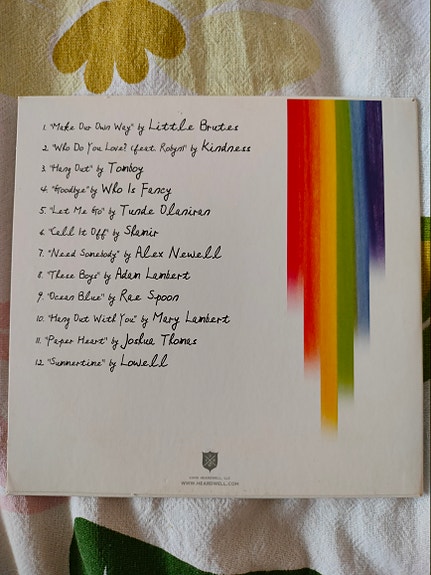 1. "Make Our Own Way" by Little Brutes
2. "Who Do You Love? (feat. Robyn)" by Kindness
3. "Hang Out" by Tomboy
4. "Goodbye" by Who Is Fancy
5. "Let Me Go" by Tunde Olaniran
6. "Call It Off" by Shamir
7. "Need Somebody" by Alex Newell
8. "These Boys" by Adam Lambert
9. "Ocean Blue" by Rae Spoon
10. "Hang Out With You" by Mary Lambert
11. "Paper Heart" by Joshua Thomas
12. "Summertime" by Lowell
HEARDWELL, LLC
WWW.HEARDWELL.COM